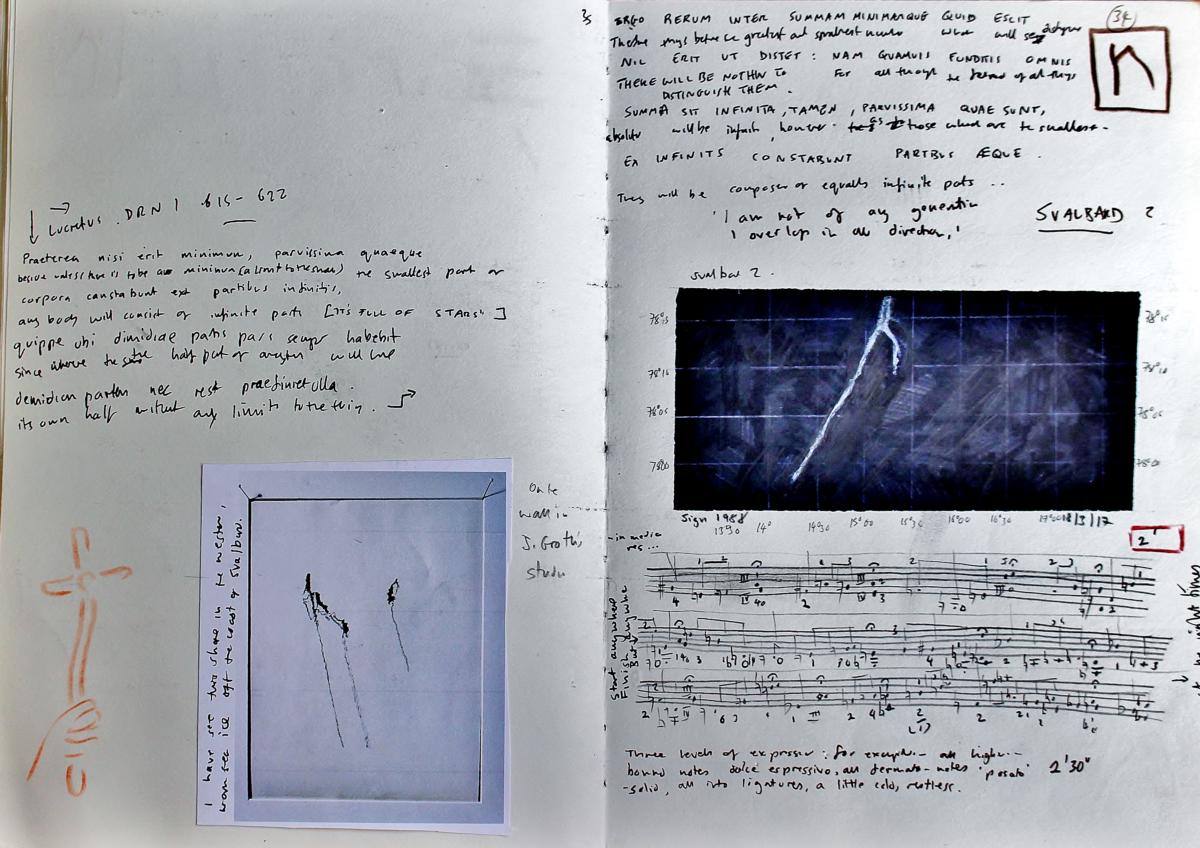 Lucretius . DRN I .615-622
Praeterea nisi erit minimum, parvissima quaeque
beside unless there is to be a minimum (a limit to the small) the smallest part of
corpora constabunt ex partibus infinitis,
any body will consist of infinite parts ["IT'S FULL OF STARS"]
quippe ubi dimidiae partis pars semper habebit
since where the half part of will have
demidian partem nec rest praefiniet ulla .
its own half without any limits to the thing .
I have seen this shape in the western,
warm sea ice off the coast of Svalbard.
On the
wall in
J. Groth's
studio
35
34
n
ERGO RERUM INTER SUMMAM MINIMAMQUE QUID ESCIT
between greatest and smallest what will
NIL ERIT UT DISTET : NAM QUAMVIS FUNDITIS OMNIS
THERE WILL BE NOTHIN TO For all though the of all things
DISTINGUISH THEM .
SUMMA SIT INFINITA, TAMEN, PARVISSIMA QUAE SUNT,
absolute will be infinite, however those which are the smallest -
EX INFINITS CONSTABUNT PARTBUS ÆQUE .
They will be composed of equally infinite parts ..
'I am not of any generation
I overlap in all direction,'
SVALBARD 2
svalbar 2 .
78°15 78°15
78°10 78°10
78°05 78°05
78°00 78°00
Sign 1988 18/3/17
13°30 14° 14°30 15°00 15°30 16°00 16°30 17°00
2'
- in media
res ...
Start anywhere
Finish anywhere
But
Three levels of expression : for example - all higher -
bound notes dolce espressivo, all fermata - notes 'posato' 2'30"
- solid, all into ligatures, a little cold, restless.